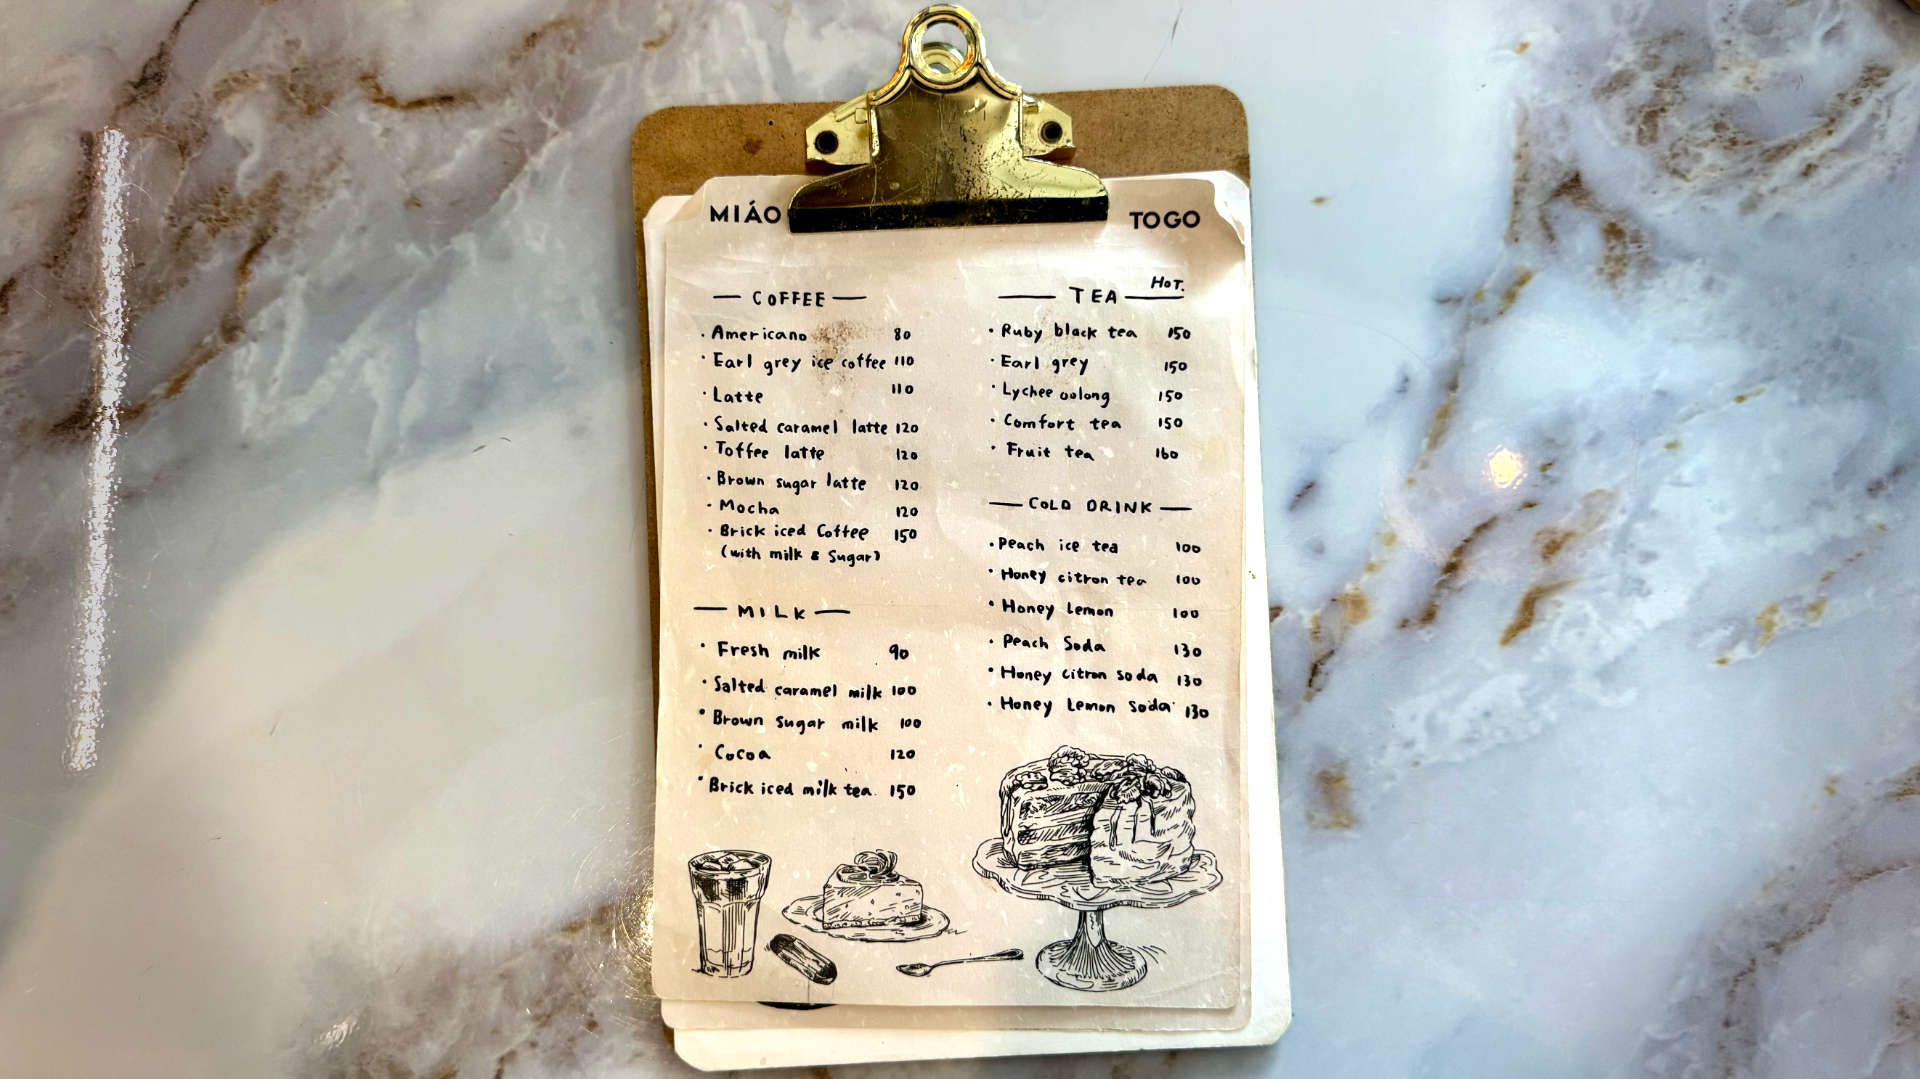 MIÁO
TOGO
COFFEE
· Americano 80
· Earl grey ice coffee 110
· Latte 110
· Salted caramel latte 120
· Toffee latte 120
· Brown sugar latte 120
· Mocha 120
· Brick iced Coffee 150
(with milk & Sugar)
MILK
· Fresh milk 90
· Salted caramel milk 100
· Brown Sugar milk 100
· Cocoa 120
· Brick iced milk tea 150
HOT.
TEA
· Ruby black tea 150
· Earl grey 150
· Lychee oolong 150
· Comfort tea 150
· Fruit tea 160
COLD DRINK
· Peach ice tea 100
· Honey citron tea 100
· Honey Lemon 100
· Peach Soda 130
· Honey citron soda 130
· Honey Lemon Soda 130